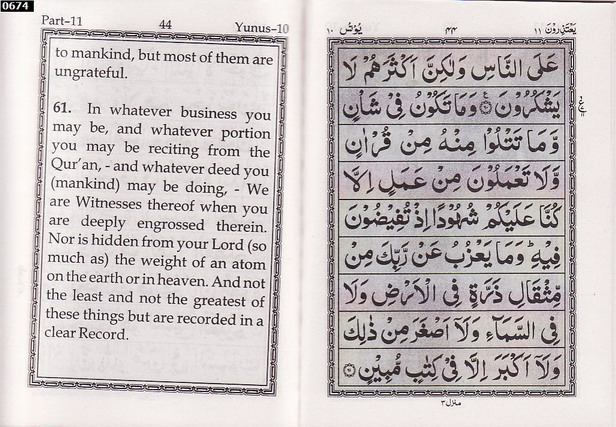 0674
Part–11 44 Yunus–10
to mankind, but most of them are
ungrateful.
61. In whatever business you
may be, and whatever portion
you may be reciting from the
Qur'an, - and whatever deed you
(mankind) may be doing, - We
are Witnesses thereof when you
are deeply engrossed therein.
Nor is hidden from your Lord (so
much as) the weight of an atom
on the earth or in heaven. And not
the least and not the greatest of
these things but are recorded in a
clear Record.
یَعْتَذِرُوْنَ ۱۱ ۴۴ یُوْنُس ۱۰
عَلَى النَّاسِ وَلٰكِنَّ اَكْثَرَهُمْ لَا
يَشْكُرُوْنَ ۶۰ وَمَا تَكُوْنُ فِيْ شَاْنٍ
وَّمَا تَتْلُوْا مِنْهُ مِنْ قُرْاٰنٍ
وَّلَا تَعْمَلُوْنَ مِنْ عَمَلٍ اِلَّا
كُنَّا عَلَيْكُمْ شُهُوْدًا اِذْ تُفِيْضُوْنَ
فِيْهِ ؕ وَمَا يَعْزُبُ عَنْ رَّبِّكَ مِنْ
مِّثْقَالِ ذَرَّةٍ فِي الْاَرْضِ وَلَا
فِي السَّمَآءِ وَلَاۤ اَصْغَرَ مِنْ ذٰلِكَ
وَلَاۤ اَكْبَرَ اِلَّا فِيْ كِتٰبٍ مُّبِيْنٍ ۶۱
منزل ۳